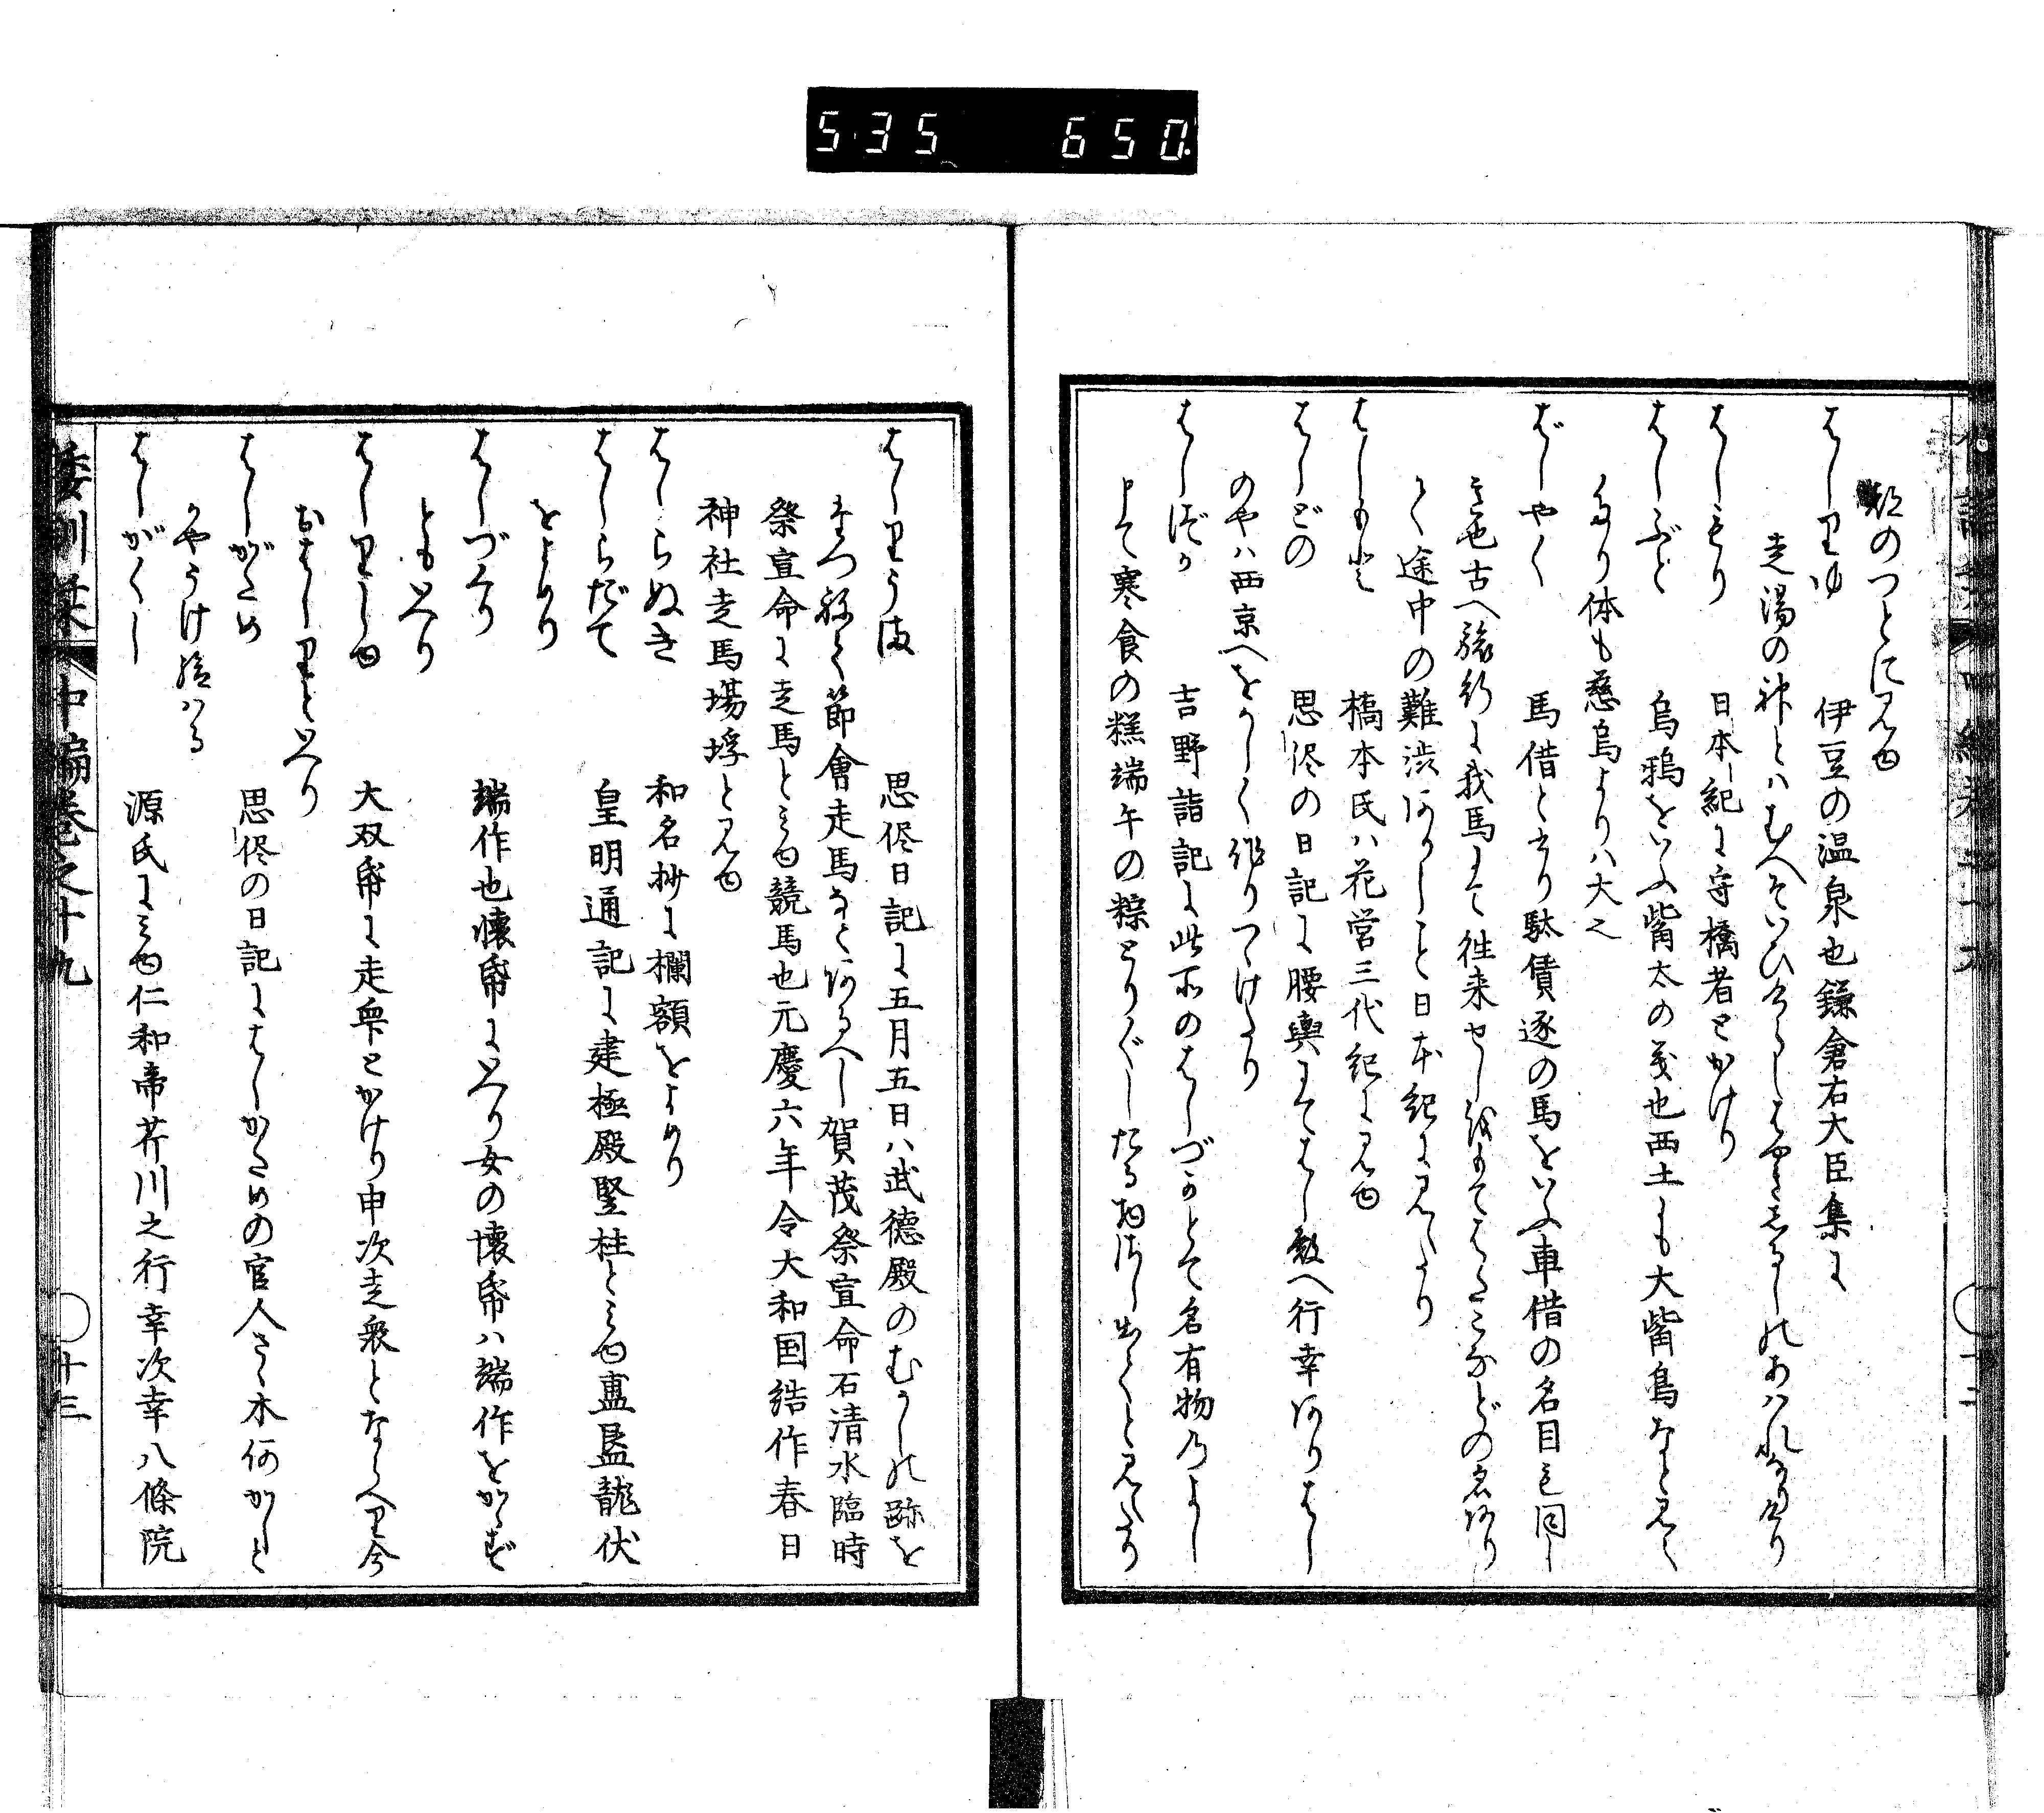 535 650
都のつとに見ゆ
はしりゆ 伊豆の温泉也鎌倉右大臣集に
走湯の神とハむへそいひけらしはやきしるしのあハれなりけり
はしもり 日本紀に守橋者とかけり
はしぶと 烏鴉をいふ觜太の義也西土にも大觜烏など見えて
あり体も慈烏よりハ大之
ばしやく 馬借と書り駄賃逐の馬をいふ車借の名目も同し
き也古へ旅行に我馬にて往来せし
く途中の難渋ありしこと日本紀に見えたり
はしもと 橋本氏ハ花営三代紀に見ゆ
はしどの 思侭の日記に腰輿にてはし殿へ行幸ありはし
のやハ西京へをかしく作りつけたり
はしづか 吉野詣記に此所のはしづかとて名有物のよし
とて寒食の糕端午の粽とりぐしたる物outくと見えたり
はしりうま 思侭日記に五月五日ハ武徳殿のむかしの跡を
たつねて節會走馬なとあるへし賀茂祭宣命石清水臨時
祭宣命に走馬とみゆ競馬也元慶六年令大和国結作春日
神社走馬場埒と見ゆ
はしらぬき 和名抄に欄額をよめり
はしらだて 皇明通記に建極殿竪柱とみゆ盧盤龍伏
をよめり
はしづくり 端作也懐帋にいへり女の懐帋ハ端作をかゝず
ともいへり
はしりしゆ 大双帋に走衆とかけり申次走衆とならへり今
おはしりといへり
はしがため 思侭の日記にはしかための官人さゝ木何がしと
かやうけ給ハる
はしがくし 源氏にみゆ仁和帝芹川之行幸次幸八條院
倭訓栞 中編巻之十九 ○十三